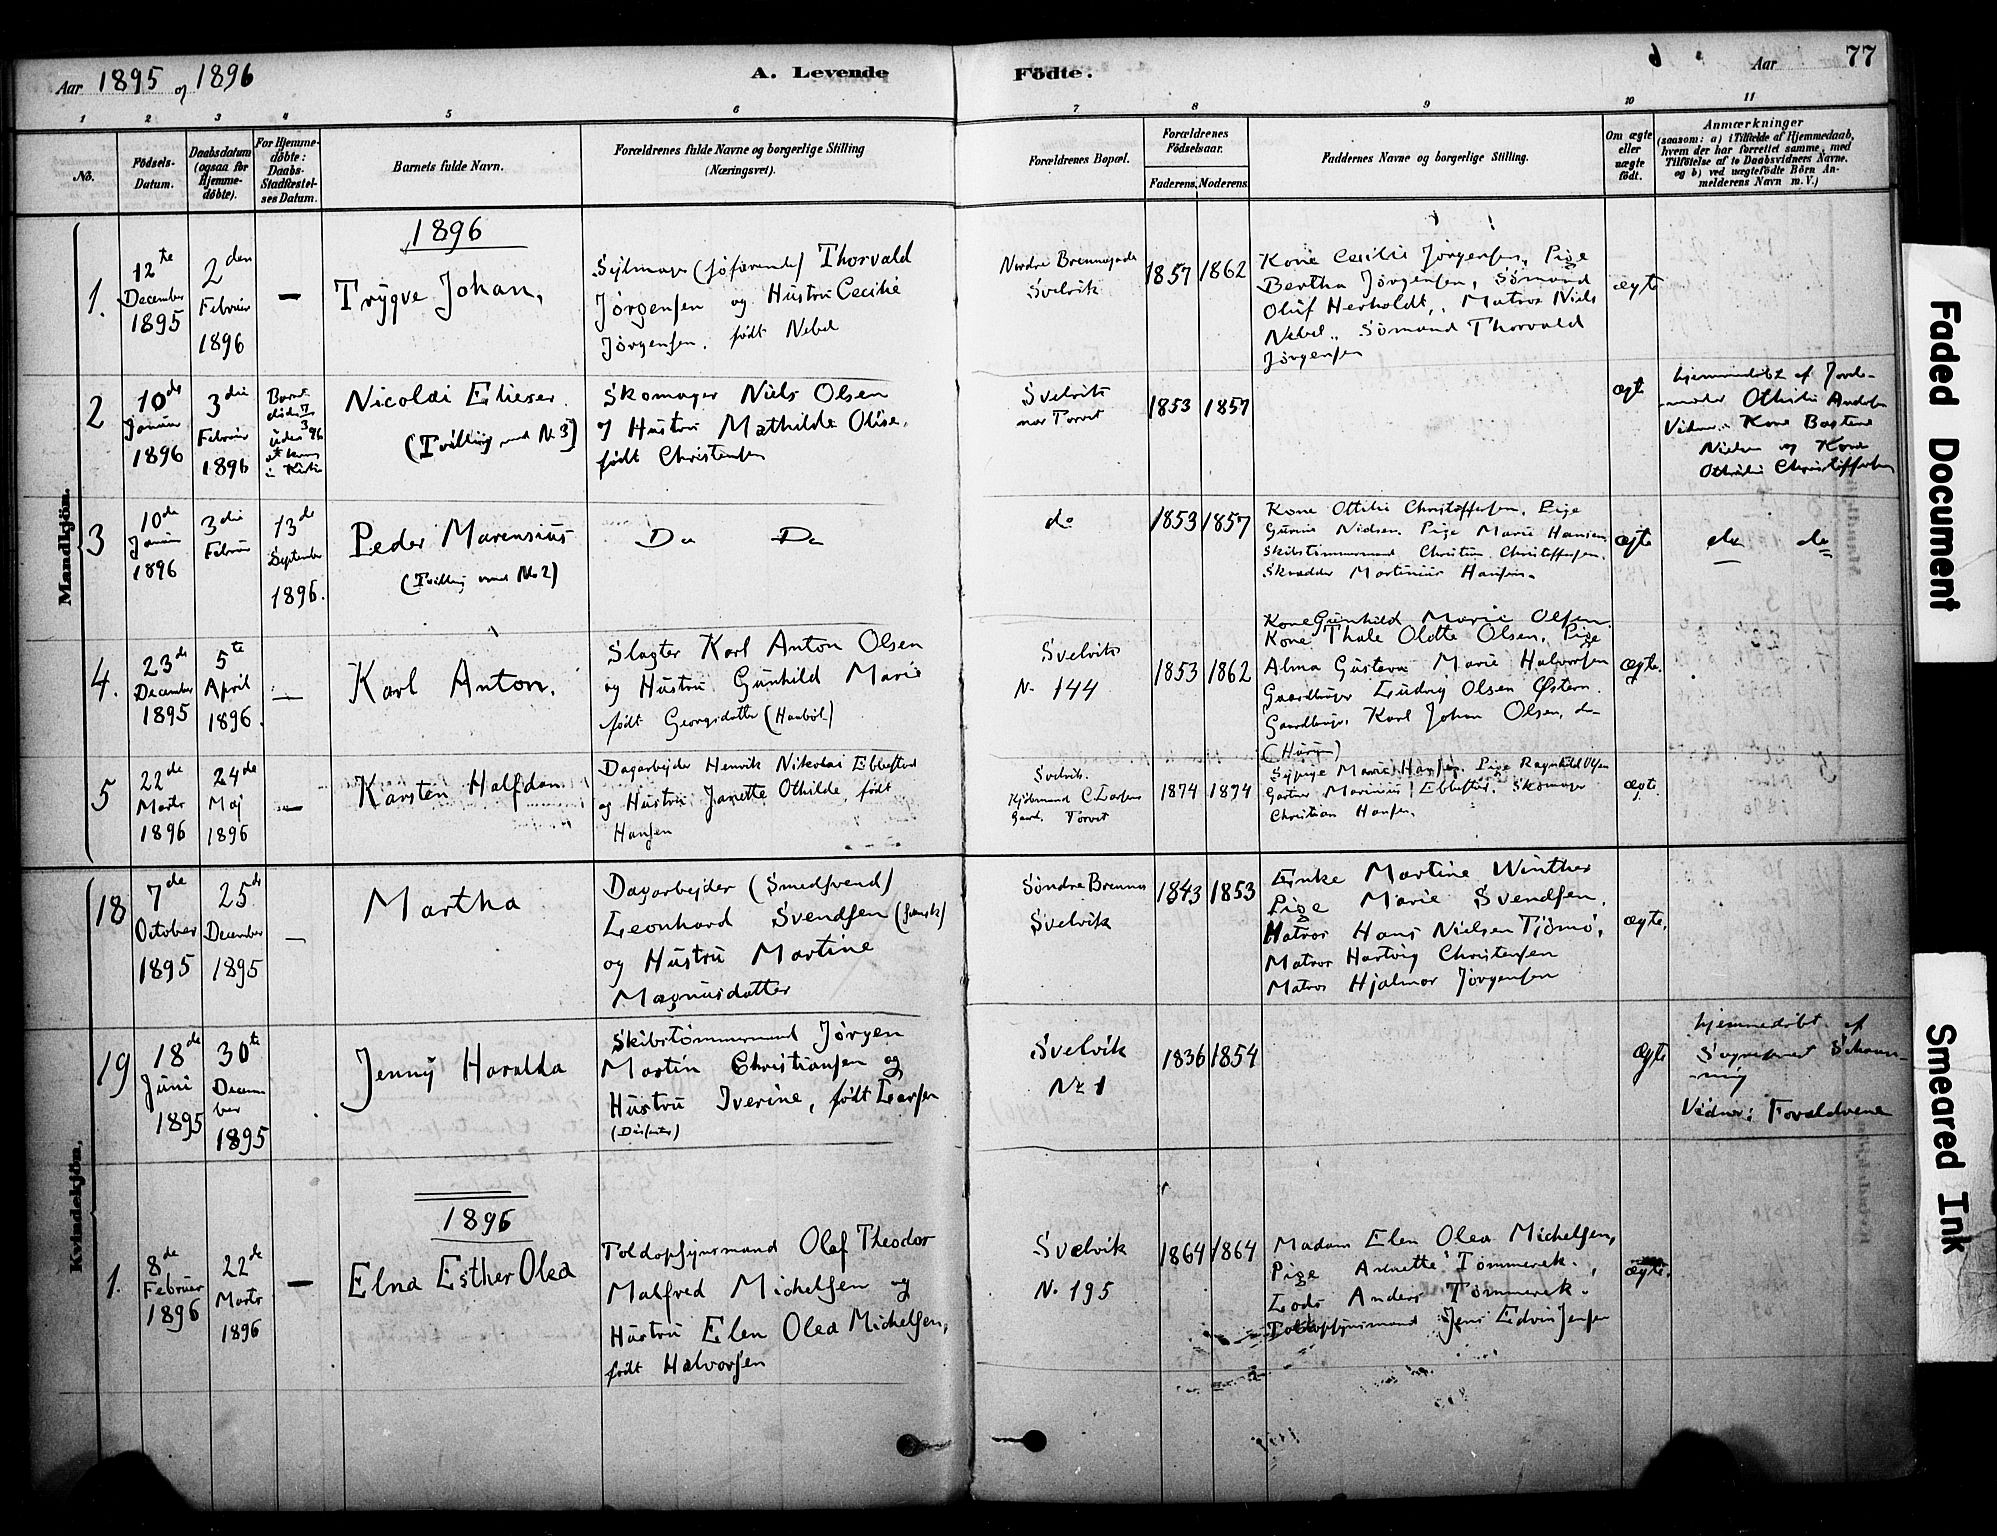 Aar 1895 og 1896
A. Levende
Fødte.
Aar
77
1 2 3 4 5 6 7 8 9 10 11
No.
Fødsels-
Datum.
Daabsdatum
(ogsaa for
Hjemme-
døbte).
For Hjemme-
døbte:
Daabs-
Stadfæstel-
ses Datum.
Barnets fulde Navn.
Forældrenes fulde Navne og borgerlige Stilling
(Næringsvei).
Forældrenes Bopæl.
Forældrenes
Fødselsaar.
Faderens. Moderens.
Faddernes Navne og borgerlige Stilling.
Om ægte
eller
uægte
født.
Anmærkninger
(saasom: a) i Tilfælde af Hjemmedaab,
hvem der har forrettet samme, med
Tilføielse af to Daabsvidners Navne,
og b) ved uægtefødte Børn An-
melderens Navn m. V.)
Mandkjøn.
1896
1.
12te
December
1895
2den
Februar
1896
—
Trygve Johan.
Sejlmager (søfarende) Thorvald
Jørgensen og Hustru Cecilie
Jørgensen. født Nebel
Nordre Brennagade
Svelvik
1857 1862
Kone Cecilie Jørgensen, Pige
Bertha Jørgensen, Sømand
Oluf Herholdt, Matros Niels
Nebel, Sømand Thorvald
Jørgensen
ægte
2
10de
Januar
1896
3die
Februar
1896
Barnet
døde
Nicolai Elieser.
(Tvilling med No 3)
Skomager Niels Olsen
og Hustru Mathilde Olise,
født Christensen
Svelvik
nær Torvet
1853 1857
ægte
hjemmedøbt af Jord-
moder Othilie
Vidner: Kone
Nielsen og Kone
Othilie Christoffersen
3
10de
Januar
1896
3die
Februar
13de
September
1896.
Peder Marensius
(Tvilling med No 2)
Do Do
do
1853 1857
Kone Ottilie Christoffersen, Pige
Nielsen. Pige Marie Hansen
Skibstømmermand Christian Christoffersen.
Skrædder Martinius Hansen.
ægte
do do
4.
23de
December
1895
5te
April
1896.
—
Karl Anton.
Slagter Karl Anton Olsen
og Hustru Gunhild Marie
født Georgsdatter
Svelvik
N. 144
1853 1862
Kone Gunhild Marie Olsen.
Kone Thale Oldte Olsen, Pige
Alma Gustava Marie Halvorsen
Gaardbruger Ludvig Olsen Østern.
Gaardbruger Karl Johan Olsen, do
(Hurum)
ægte.
5
22de
Marts
1896
24de
Maj
1896
—
Karsten Halfdan
Dagarbejder Henrik Nikolai Ebbestad
og Hustru Janette Othilde, født
Hansen
Svelvik.
Kjøbmand C. Larsens
Gaard. Torvet
1874 1874
Sypige Marie Hansen, Pige Ragnhild Olsen
Gartner Marinius Ebbestad, Skomager
Christian Hansen.
ægte.
Kvindekjøn.
18
7de
October
1895
25de
December
1895
—
Martha
Dagarbejder (Smedsvend)
Leonhard Svendsen (Svensk)
og Hustru Martine
Magnusdatter
Søndre Brenna
Svelvik
1843 1853
Enke Martine Winther
Pige Marie Svendsen.
Matros Hans Nielsen Tjømø,
Matros Hartvig Christensen
Matros Hjalmar Jørgensen
ægte.
19
18de
Juni
1895
30te
Decem
ber
1895
Jenny Haralda
Skibstømmermand Jørgen
Martin Christiansen og
Hustru Iverine, født Larsen
(Dissenter)
Svelvik
Nr 1
1836 1854
ægte
hjemmedøbt af
Sognepræst Schøn-
ning
Vidner: Forældrene
1896
1.
8de
Februar
1896
22de
Marts
1896
—
Elna Esther Olea
Toldopsynsmand Olaf Theodor
Malfred Michelsen og
Hustru Elen Olea Michelsen,
født Halvorsen
Svelvik
N. 195
1864 1864
Madam Elen Olea Michelsen,
Pige Annette Tømmerek.
Lods Anders Tømmerek.
Toldopsynsmand Jens Edvin Jensen
ægte.
Faded Document
Smeared Ink